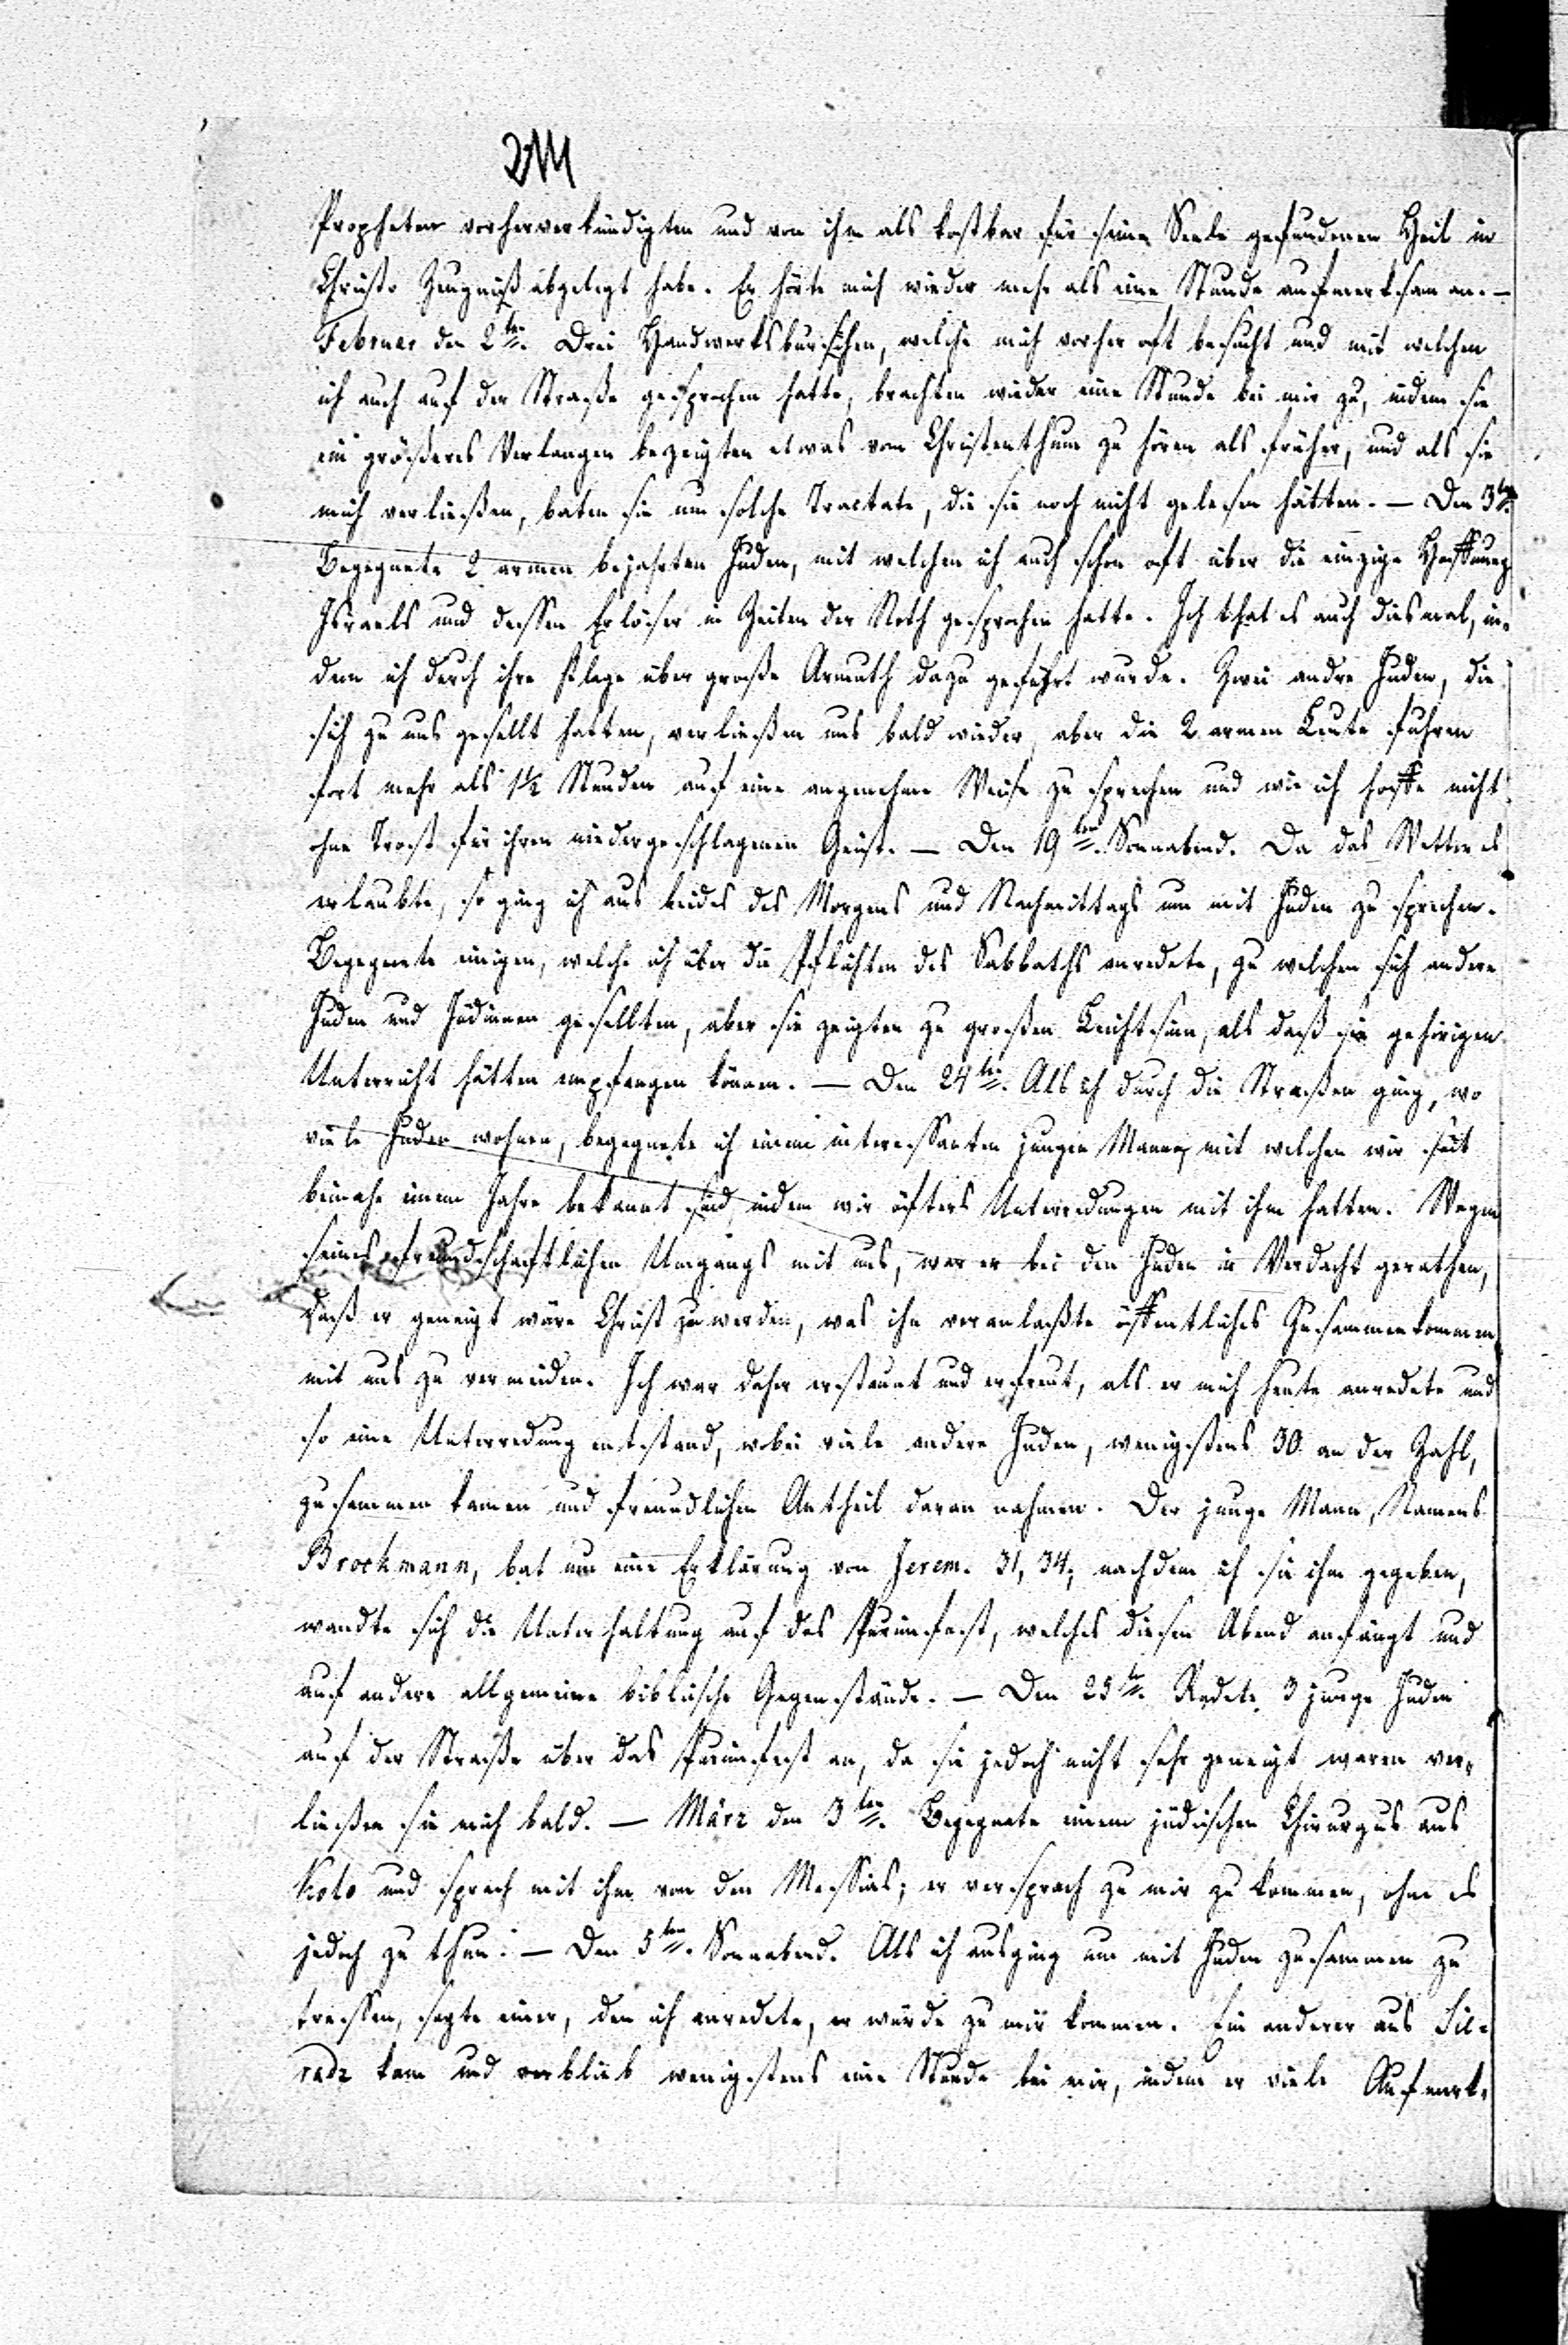 Propheten vorherverkündigten und von ihm als kostbar für seine Seele gefundenen Heil in
Christo Zeugniß abgelegt habe. Er hörte mich wieder mehr als eine Stunde aufmerksam an. —
Februar den 2ten. Drei Handwerksburschen, welche mich vorher oft besucht und mit welchen
ich auch auf der Straße gesprochen hatte, brachten wieder eine Stunde bei mir zu, indem sie
ein größeres Verlangen bezeigten etwas vom Christenthum zu hören als früher, und als sie
mich verließen, baten sie um solche Tractate, die sie noch nicht gelesen hätten. — Den 3ten
Begegnete 2 armen bejahrten Juden, mit welchen ich auch schon oft über die einzige Hoffnung
Israels und dessen Erlöser in Zeiten der Noth gesprochen hatte. Ich that es auch diesmal, in-
dem ich durch ihre Klage über große Armuth dazu geführt wurde. Zwei andre Juden, die
sich zu uns gesellt hatten, verließen uns bald wieder, aber die 2 armen Leute fuhren
fort mehr als 1½ Stunden auf eine angenehme Weise zu sprechen und wie ich hoffe nicht
ohne Trost für ihren niedergeschlagenen Geist. — Den 19ten. Sonnabend. Da das Wetter es
erlaubte, so ging ich aus beides des Morgens und Nachmittags um mit Juden zu sprechen.
Begegnete einigen, welche ich über die Pflichten des Sabbaths anredete, zu welchen sich andere
Juden und Jüdinnen gesellten, aber sie zeigten zu großen Leichtsinn, als daß sie gehörigen
Unterricht hätten empfangen können. — Den 24ten. Als ich durch die Straßen ging, wo
viele Juden wohnen, begegnete ich einem interessanten jungen Manne, mit welchen wir seit
beinahe einem Jahre bekannt sind, indem wir öfters Unterredungen mit ihm hatten. Wegen
seines freundschaftlichen Umgangs mit uns, war er bei den Juden in Verdacht gerathen,
daß er geneigt wäre Christ zu werden, was ihn veranlaßte öffentliches Zusammenkommen
mit uns zu vermeiden. Ich war daher erstaunt und erfreut, als er mich heute anredete und
so eine Unterredung entstand, wobei viele andere Juden, wenigstens 30 an der Zahl,
zusammen kamen und freundlichen Antheil daran nahmen. Der junge Mann, Namens
Brockmann, bat um eine Erklärung von Jerem. 31, 34; nachdem ich sie ihm gegeben,
wandte sich die Unterhaltung auf das Purimfest, welches diesen Abend anfängt und
auf andere allgemeine biblische Gegenstände. — Den 25ten. Redete 3 junge Juden
auf der Straße über das Purimfest an, da sie jedoch nicht sehr geneigt waren ver-
ließen sie mich bald. — März den 3ten. Begegnete einem jüdischen Chirurgus aus
Kolo und sprach mit ihm von dem Messias; er versprach zu mir zu kommen, ohne es
jedoch zu thun. — Den 5ten. Sonnabend. Als ich ausging um mit Juden zusammen zu
treffen, sagte einer, den ich anredete, er würde zu mir kommen. Ein anderer aus Sie-
radz kam und verblieb wenigstens eine Stunde bei mir, indem er viele Aufmerk-